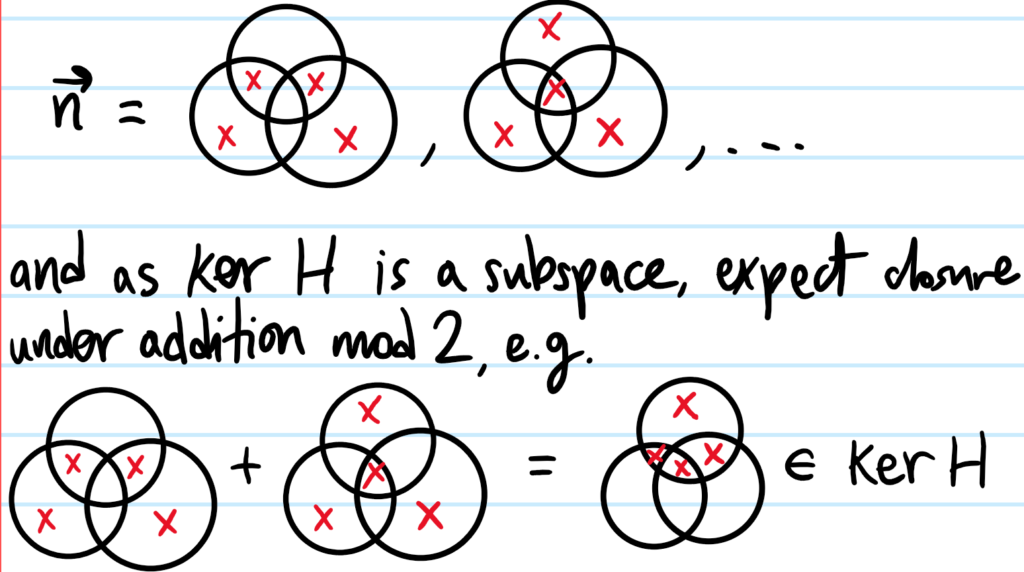 n⃗ = , , ....
and as ker H is a subspace, expect closure
under addition mod 2, e.g.
+ = ∈ ker H